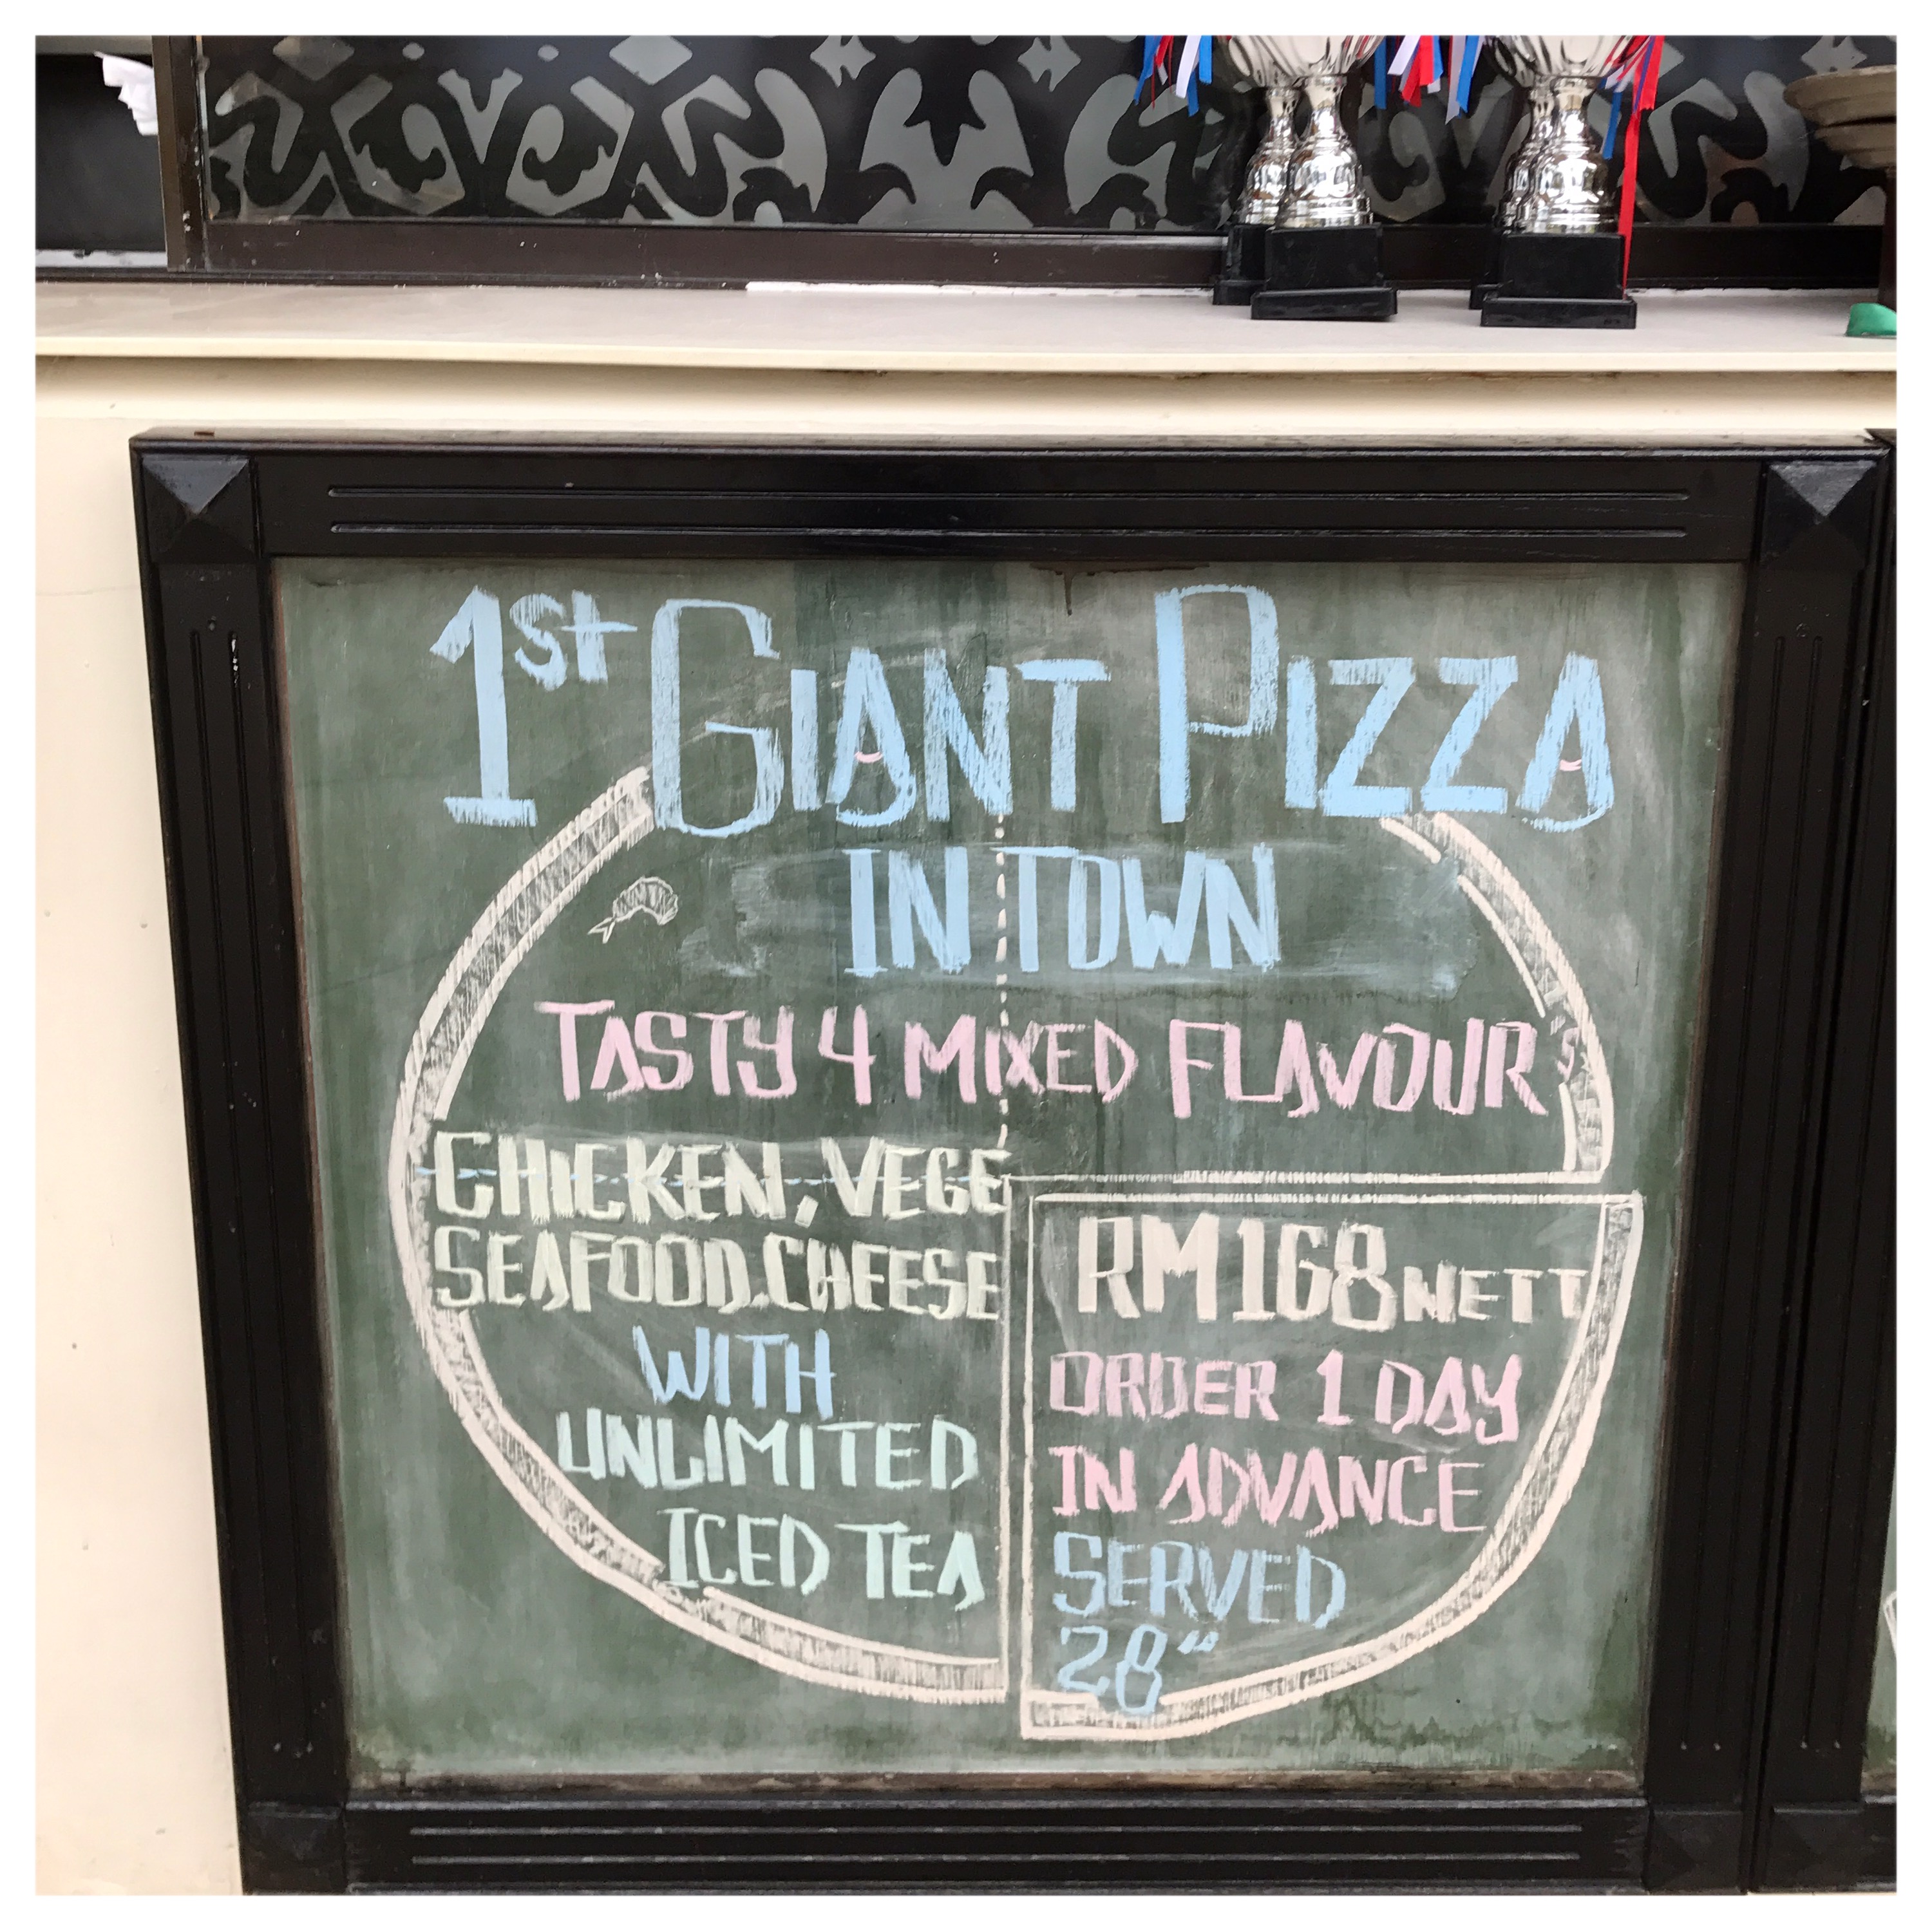 1st GIANT PIZZA
IN TOWN
TASTY 4 MIXED FLAVOUR
CHICKEN, VEGE
SEAFOOD.CHEESE
WITH
UNLIMITED
ICED TEA
RM168 NETT
ORDER 1 DAY
IN ADVANCE
SERVED
28"